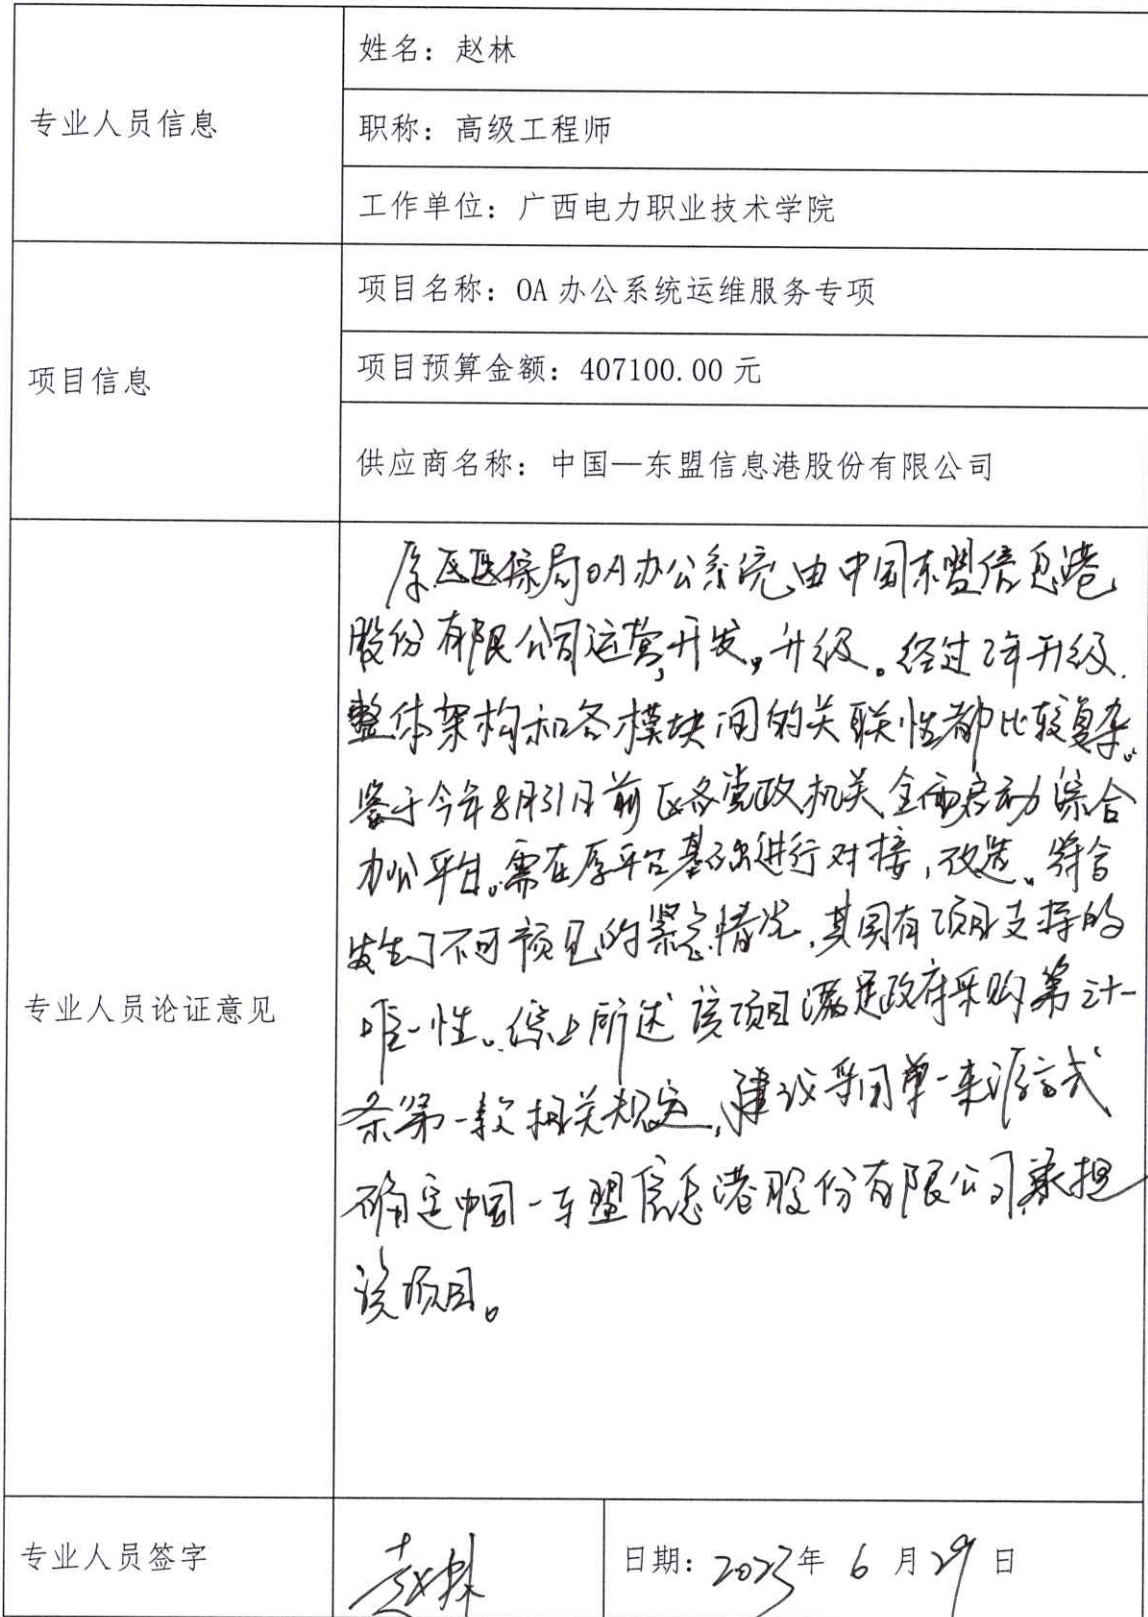 专业人员信息
姓名：赵林
职称：高级工程师
工作单位：广西电力职业技术学院
项目信息
项目名称：OA 办公系统运维服务专项
项目预算金额：407100.00 元
供应商名称：中国—东盟信息港股份有限公司
专业人员论证意见
原区医保局OA办公系统由中国东盟信息港
股份有限公司运营,开发,升级。经过2年升级.
整体架构和各模块间的关联性都比较复杂。
鉴于今年8月31日前区各党政机关全面启动综合
办公平台。需在原平台基础进行对接,改造。符合
发生了不可预见的紧急情况,其具有项目支撑的
唯一性。综上所述该项目满足政府采购第三十一
条第一款相关规定,建议采用单一来源方式
确定中国一东盟信息港股份有限公司承担
该项目。
专业人员签字
赵林
日期：2023年 6 月 29 日